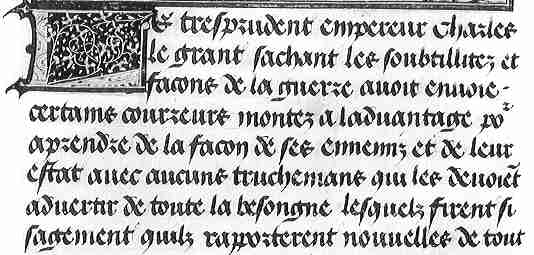 Le tresprudent empereur Charles
le grant sachant les soubtillitez et
facons de la guerre auoit enuoie
certains coureurs montez a laduantage por
aprendre de la facon de ses ennemiz et de leur
estat auec aucuns truchemans qui les deuoiēt
aduertir de toute la besongne lesquelz firent si
sagement quilz rapporterent nouuelles de tout